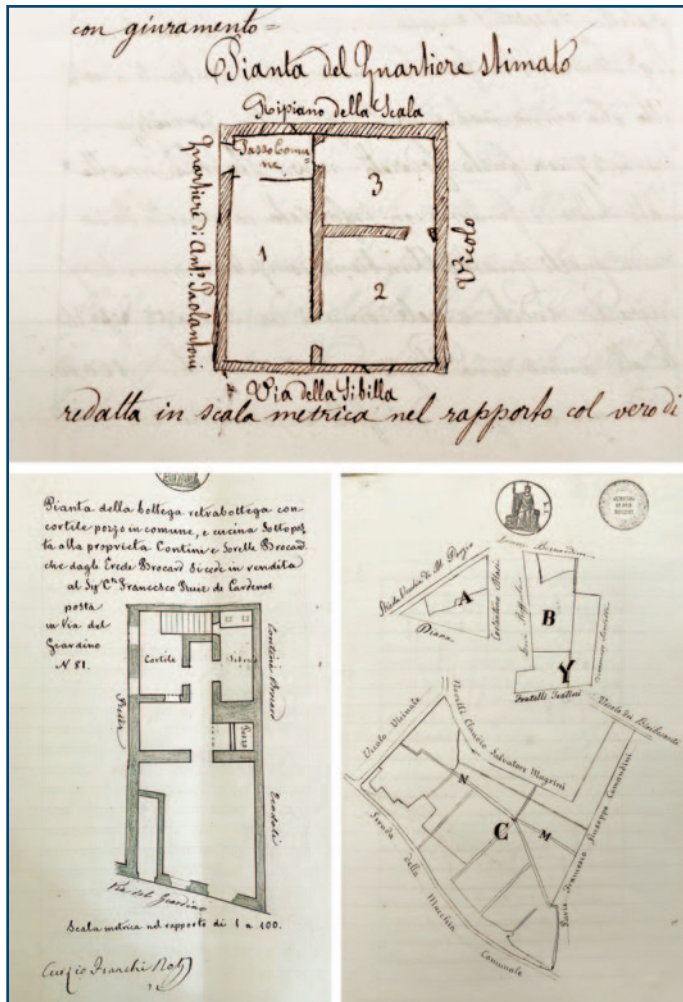 con giuramento=
Pianta del Quartiere stimato
Ripiano della Scala
Passo Comu=
ne
Quartiere di Ant.º Paolantoni
1
3
2
Vicolo
Via della Sibilla
redatta in scala metrica nel rapporto col vero di
Pianta della bottega retrabottega con
cortile pozzo in comune, e cucina Sottopos
ta alla proprietà Contini e Sorelle Brocard
che dagli Erede Brocard Si cede in vendita
al Sig Francesco Ruiz de Cardenas
posta
in Via del
Geardino
N 81.
Cortile
Contini Brocard
Pozzo
Via del Geardino
Scala metrica nel rapporto di 1 a 100.
Curzio Franchi
Strada Vecchia di M. Porzio
A
Costantino Masi
B
Y
Fratelli Santini
Vicolo dei
Vicolo Vicinale
Novelli Claudio Salvatore Magrini
N
C
M
Strada
della
Macchia
Comunale
Francesco Giuseppe Comandini